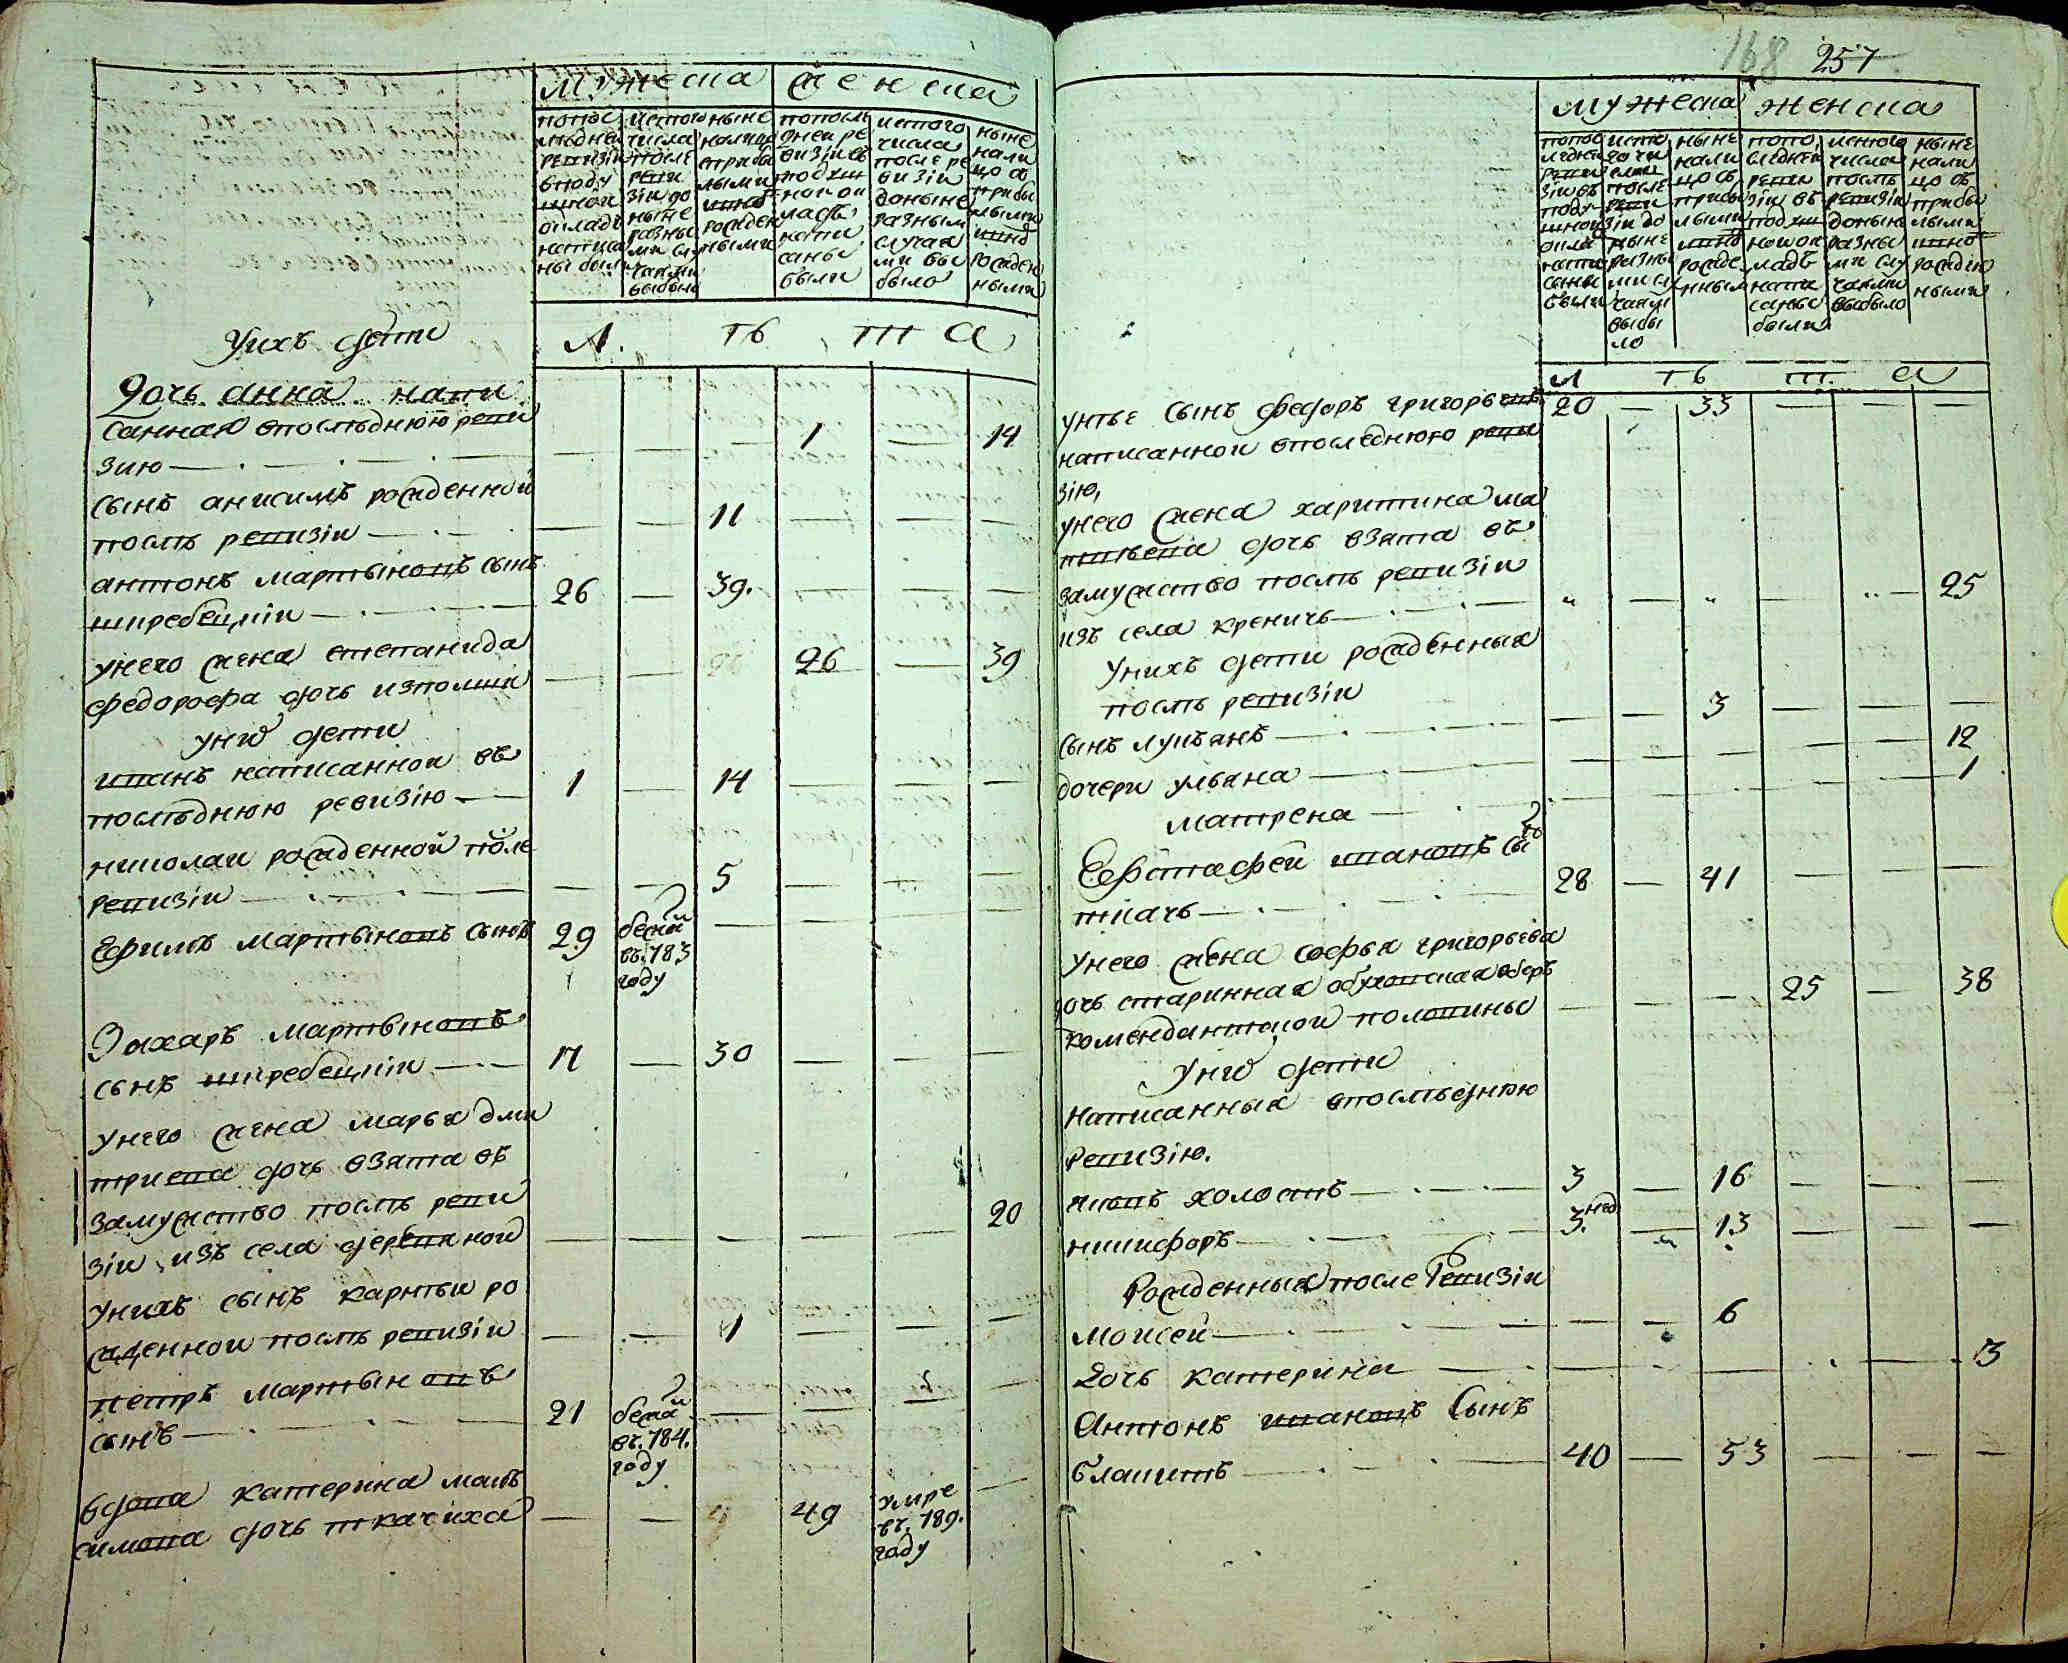 мужеска женска
попос леднеи ревизіи вподу шной окладъ написа ны были
истого числа после реви зіи до ныне разны ми слу чаями выбыло
ныне налицо сприбы лыми иново рожден ными
попосле днеи ре визіи въ подуш ной ок ладъ напи саны были
истого числа после ре визіи доныне разным случая ми вы было
ныне нали цо съ прибы лыми иново рожден ными
У нихъ дети
Л. Ѣ т а
Дочь анна напи
санная впоследнюю реви
зию — 1 — 14
сынъ анисимъ рожденной
послѣ ревизіи — — 11 — — —
антонъ мартыновъ сынъ
жеребецкіи 26 — 39. — — —
унего жена степанида
федорова дочь изполши — — 26 — 39
уних дети
иванъ написанной въ
послѣднюю ревизію — 1 — 14 — — —
николаи рожденной после
ревизіи — — 5 — — —
Ефимъ мартыновъ сынъ 29 бежа въ. 783 году —
Захаръ мартыновъ
сынъ жеребецкіи — 17 — 30 — — —
унего жена марья дми
триева дочь взята въ
замужство послѣ реви
зіи изъ села деревяной — — — — — 20
унихъ сынъ карнѣи ро
жденнои послѣ ревизіи — — 1 — — —
петръ мартыновъ
сынъ — 21 бежа въ. 784. году — — — —
вдова катерина мак
симова дочь ткачиха — — 49 умре въ. 789. году —
168 257
мужеска женска
попос ледней реви зіи въ поду шной окла напи саны были
исто го чи сла после реви зіи до ныне разны ми слу чаями выбы ло
ныне нали цо съ прибы лыми иново рожде нным
попо следней реви зіи въ подуш ной ок ладъ напи саны были
истого числа послѣ ревизіи доныне разны ми слу чаями выбыло
ныне нали цо съ прибы лыми иново рожден ными
Л Ѣ т. а
унѣе сынъ федоръ григорьевъ 20 — 33 — — —
написанной впоследнюю реви
зію,
унего жена харитина ма
твѣева дочь взята въ
замужство послѣ ревизіи
изъ села креничь — — — — 25
Унихъ дети рожденныя
послѣ ревизіи
сынъ лукьанъ — — — 3 — — —
дочери ульяна — 12
матрена — 1
Евстафеи ивановъ сынъ
ткачь — 28 — 41 — — —
Унего жена софья григорьева
дочь старинная обуховская оберъ
комендантской половины — — — 25 — 38
Уних дети
Написанныя впослѣднюю
ревизію.
яковъ холостъ — 3 — 16 — — —
никифоръ — 3. нед — 13 — — —
Рожденныя после Ревизіи
моисей — — — 6
Дочь катерина — 13
Антонъ ивановъ Сынъ
блакитъ — 40 — 53 — — —